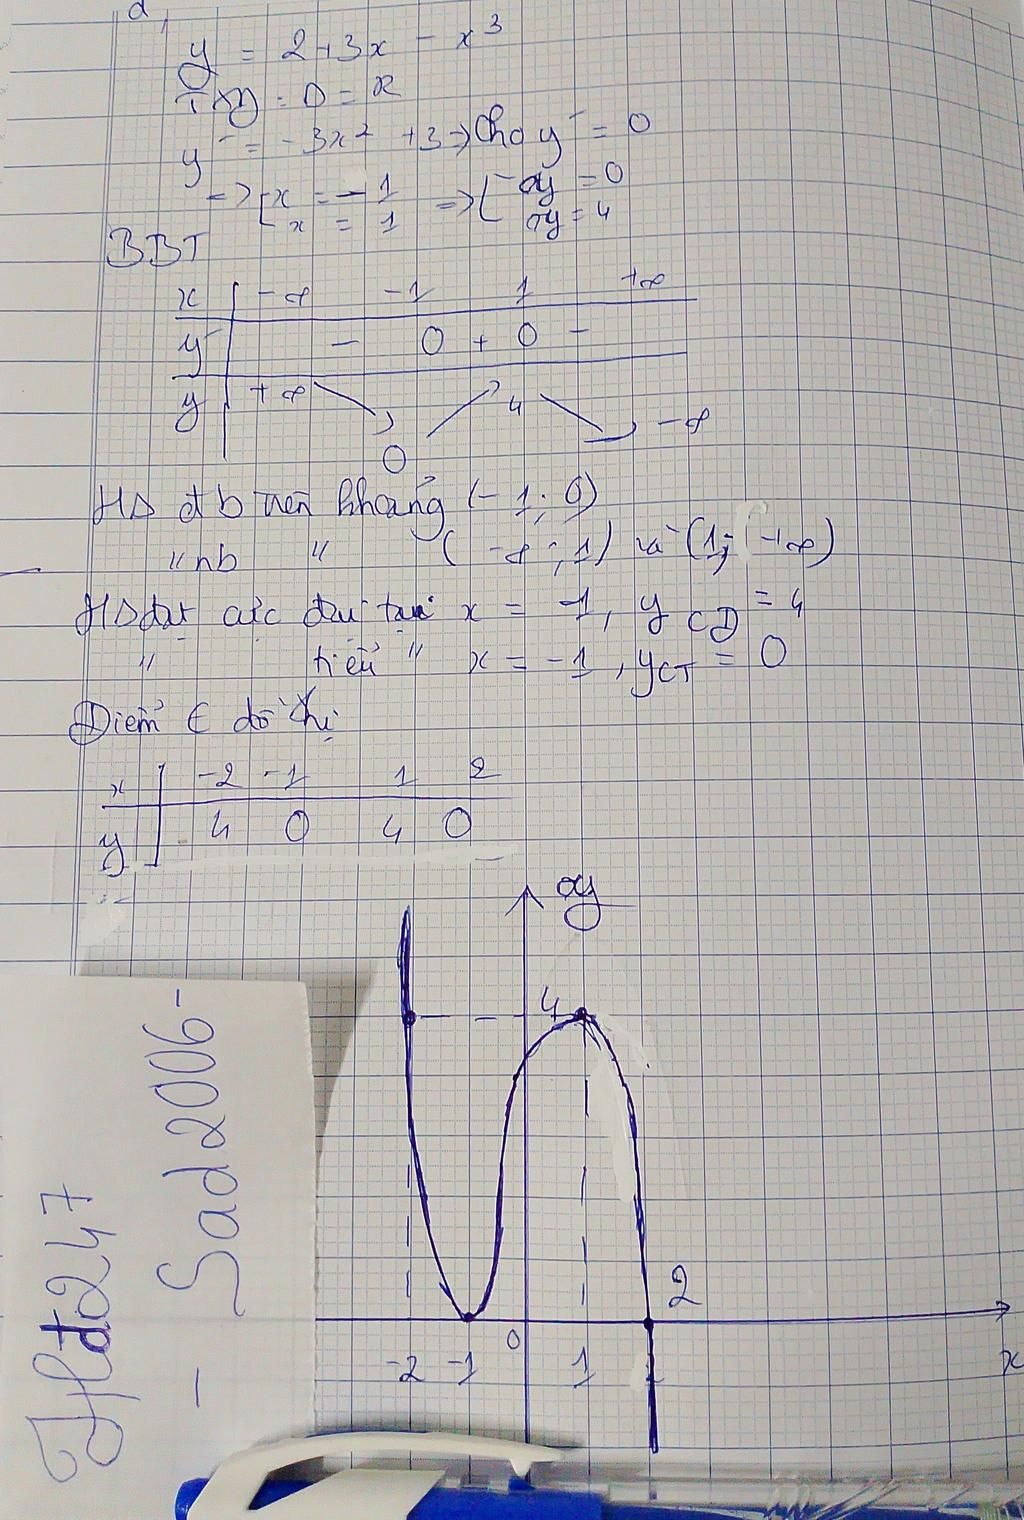 d,
y = 2+3x - x³
TXĐ: D = R
y' = -3x² +3 => Cho y' = 0
=> [ x = -1 => [ y = 0
x = 1 y = 4
BBT
x | -∞ -1 1 +∞
y' | - 0 + 0 -
y | +∞ 0 4 -∞
HS đb trên khoảng (-1; 0)
"nb " (-∞; 1) và (1; +∞)
HS đạt cực đại tại x = -1, yCĐ = 4
" tiểu " x = -1, yCT = 0
Điểm ∈ đồ thị
x | -2 -1 1 2
y | 4 0 4 0
y
4
2
0
-2 -1 1
x
Hđ247
- Sad2006-